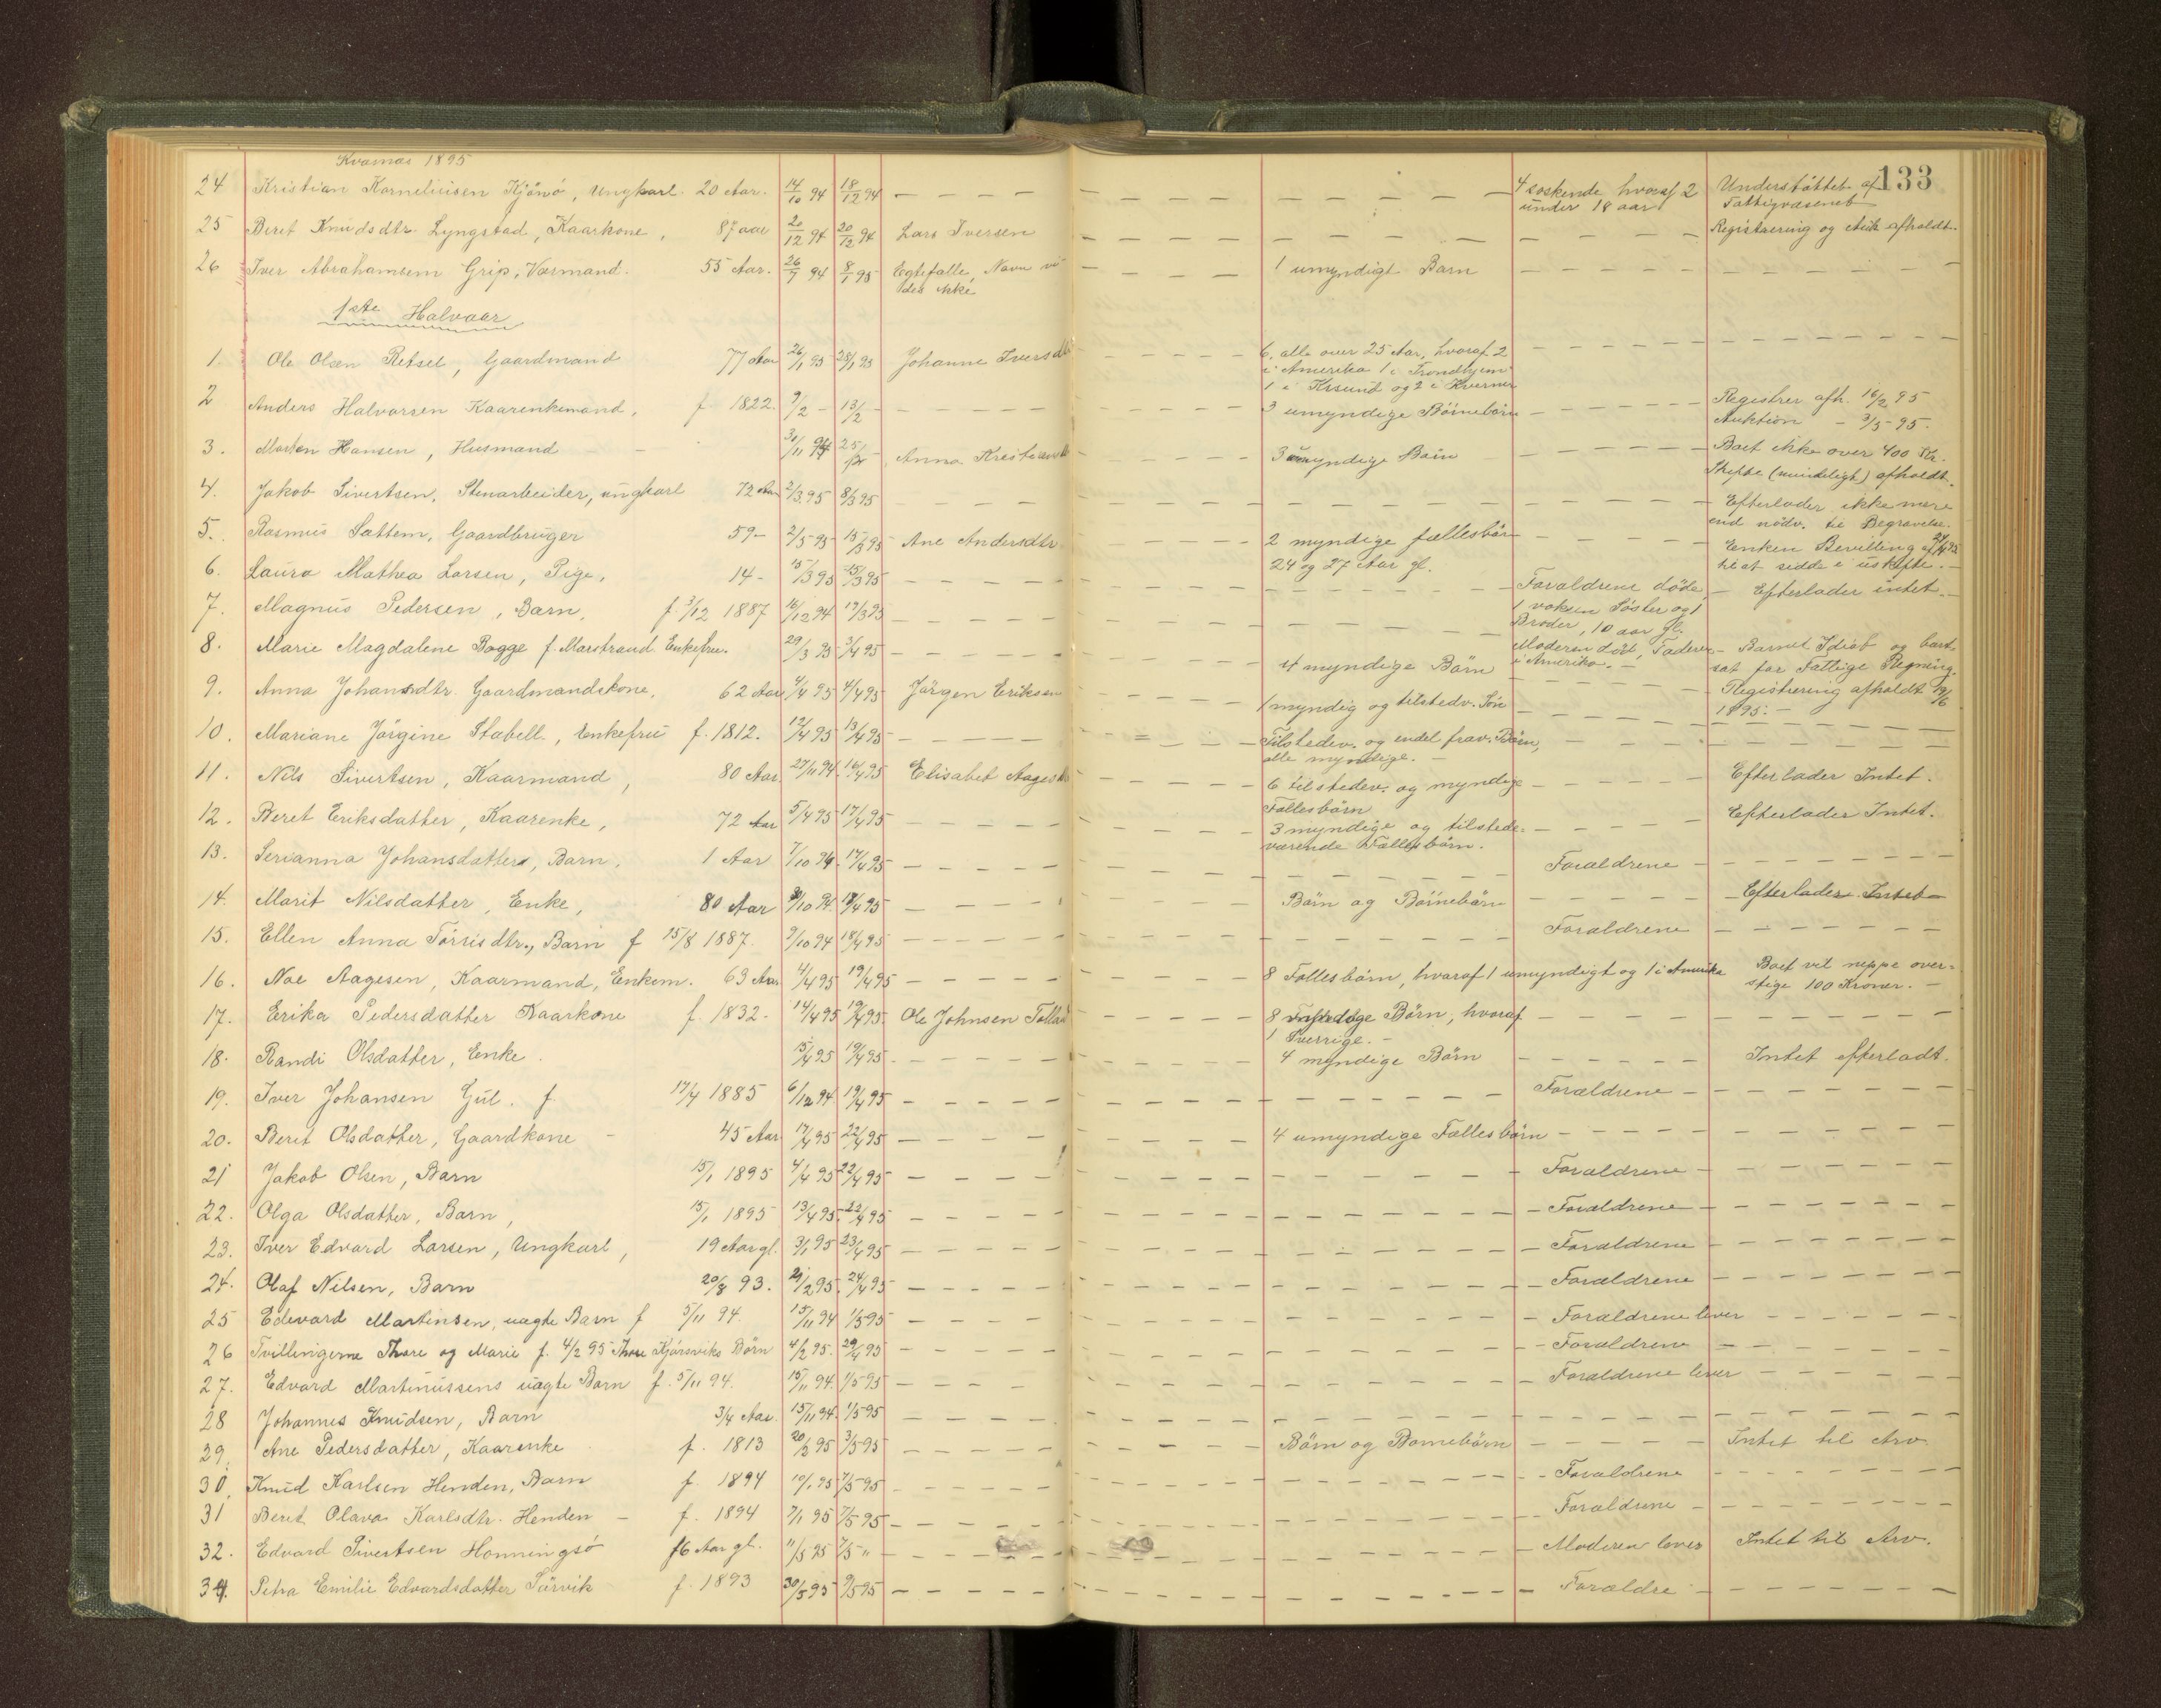 133
Kvarnæs 1895
24 Kristian Korneliusen Kjønø, Ungkarl. 20 Aar. 14/10 94 18/12 94 4 søskende hvoraf 2 Understøttet af
under 18 aar Fattigvæsenet
25 Beret Knudsdtr. Lyngstad, Kaarkone, 87 aar 20/12 94 20/12 94 Lars Iversen Registrering og Auk. afholdt.
26 Iver Abrahamsen Grip, Værmand. 55 Aar. 26/7 94 8/1 95 Egtefælle, Navn vi- 1 umyndigt Barn
des ikke
1ste Halvaar
1. Ole Olsen Retsel, Gaardmand 77 Aar 26/1 95 28/1 95 Johanne Iversdtr 6, alle over 25 Aar, hvoraf 2
i Amerika 1 i Trondhjem
1 i Krsund og 2 i Kvernes
2 Anders Halvorsen Kaarenkemand, f 1822. 9/2 - 13/2 - 3 umyndige Börnebörn Registrer. afh. 16/2 95
Auktion - 3/5 95.
3. Morten Hansen, Husmand 30/11 94 25/ Anna Kristens 3 umyndige Barn Boet ikke over 400 Kr.
Skifte (mindeligt) afholdt.
4. Jakob Sivertsen, Stenarbeider, ungkarl 72 Aar 2/3 95 8/3 95 Efterlader ikke mere
end nödv. til Begravelse.
5. Rasmus Sattem, Gaardbruger 59- 2/3 95 15/3 95 Ane Andersdtr 2 myndige fællesbörn Enken Bevilling af
24 og 27 Aar gl. til at sidde i uskifte. -
6. Laura Mathea Larsen, Pige, 14- 15/3 95 15/3 95 Forældrene døde, Efterlader intet. -
1 voksen Søster og 1
Broder, 10 aar gl.
7. Magnus Pedersen, Barn, f. 3/12 1887 16/12 94 19/3 95 Moderen död, Faderen Barnet Idiot og bort-
i Amerika. - sat for Fattige Regning.
8. Marie Magdalene Bogge f. Marstrand Enkefru. 29/3 95 3/4 95 4 myndige Börn Registrering afholdt 19/6
1895. -
9. Anna Johansdtr. Gaardmandskone, 62 Aar 4/4 95 4/4 95 Jörgen Eriksen 1 myndig og tilstedv. Sön
10. Mariane Jörgine Stabell, Enkefru f. 1812. 12/4 95 13/4 95 Tilstedev. og endel frav. Börn,
alle myndige. -
11. Nils Sivertsen, Kaarmand, 80 Aar 27/11 94 16/4 95 Elisabet Aages 6 tilstedev. og myndige Efterlader Intet.
Fællesbörn
12. Beret Eriksdatter, Kaarenke, 72 Aar 5/4 95 17/4 95 3 myndige og tilstede- Efterlader Intet.
værende Fællesbörn.
13. Serianna Johansdatter, Barn. 1 Aar 7/10 94 17/4 95 Forældrene
14. Marit Nilsdatter, Enke, 80 Aar 30/10 94. 18/4 95 Börn og Börnebörn Efterlader Intet
15. Ellen Anna Törrisdtr., Barn f 15/8 1887. 9/10 94 18/4 95 Forældrene
16. Noe Aagesen, Kaarmand, Enkem. 63 Aar 4/4 95 19/4 95 8 Fællesbörn, hvoraf 1 umyndigt og 1 i Amerika Boet vil neppe over-
stige 100 Kroner. -
17. Erika Pedersdatter Kaarkone f. 1832. 14/4 95 19/4 95. Ole Johnsen 8 myndige Börn, hvoraf
1 Sverrige. -
18. Randi Olsdatter, Enke. 15/4 95 19/4 95. 4 myndige Börn Intet efterladt.
19. Iver Johansen Gul. f. 17/7 1885 6/12 94 19/4 95 Forældrene
20. Beret Olsdatter, Gaardkone 45 Aar 17/4 95 22/4 95 4 umyndige Fællesbörn
21 Jakob Olsen, Barn 15/1 1895 4/4 95 22/4 95 Forældrene
22. Olga Olsdatter, Barn, 15/1 1895 13/4 95. 22/4 95 Forældrene
23. Iver Edvard Larsen, Ungkarl, 19 Aar gl. 3/1 95 23/4 95 Forældrene
24. Olaf Nilsen, Barn 20/8 93. 21/2 95. 24/4 95 Forældrene
25 Edevard Martinsen, uægte Barn f 5/11 94. 15/11 94 1/5 95 Forældrene lever
26 Tvillingerne Thore og Marie f. 4/2 95 Thore Kjørsviks Börn 4/2 95. 29/4 95 Forældrene
27. Edvard Martinussens uægte Barn f. 5/11 94. 15/11 94. 1/5 95 Forældrene lever
28 Johannes Knudsen, Barn 3/4 Aar. 15/11 94. 1/5 95
29. Ane Pedersdatter, Kaarenke f. 1813 20/2 95 3/5 95 Börn og Börnebörn Intet til Arv
30. Knud Karlsen Henden, Barn f 1894 10/1 95 7/5 95 Forældrene
31 Beret Olava Karlsdtr. Henden f. 1894 7/1 95 7/5 95 Forældrene
32. Edvard Sivertsen Honningsö 16 Aar gl. 11/5 95 7/5 " Moderen lever Intet til Arv.
34. Petra Emilie Edvardsdatter Sörvik f. 1893 30/5 95 9/5 95 Forældre